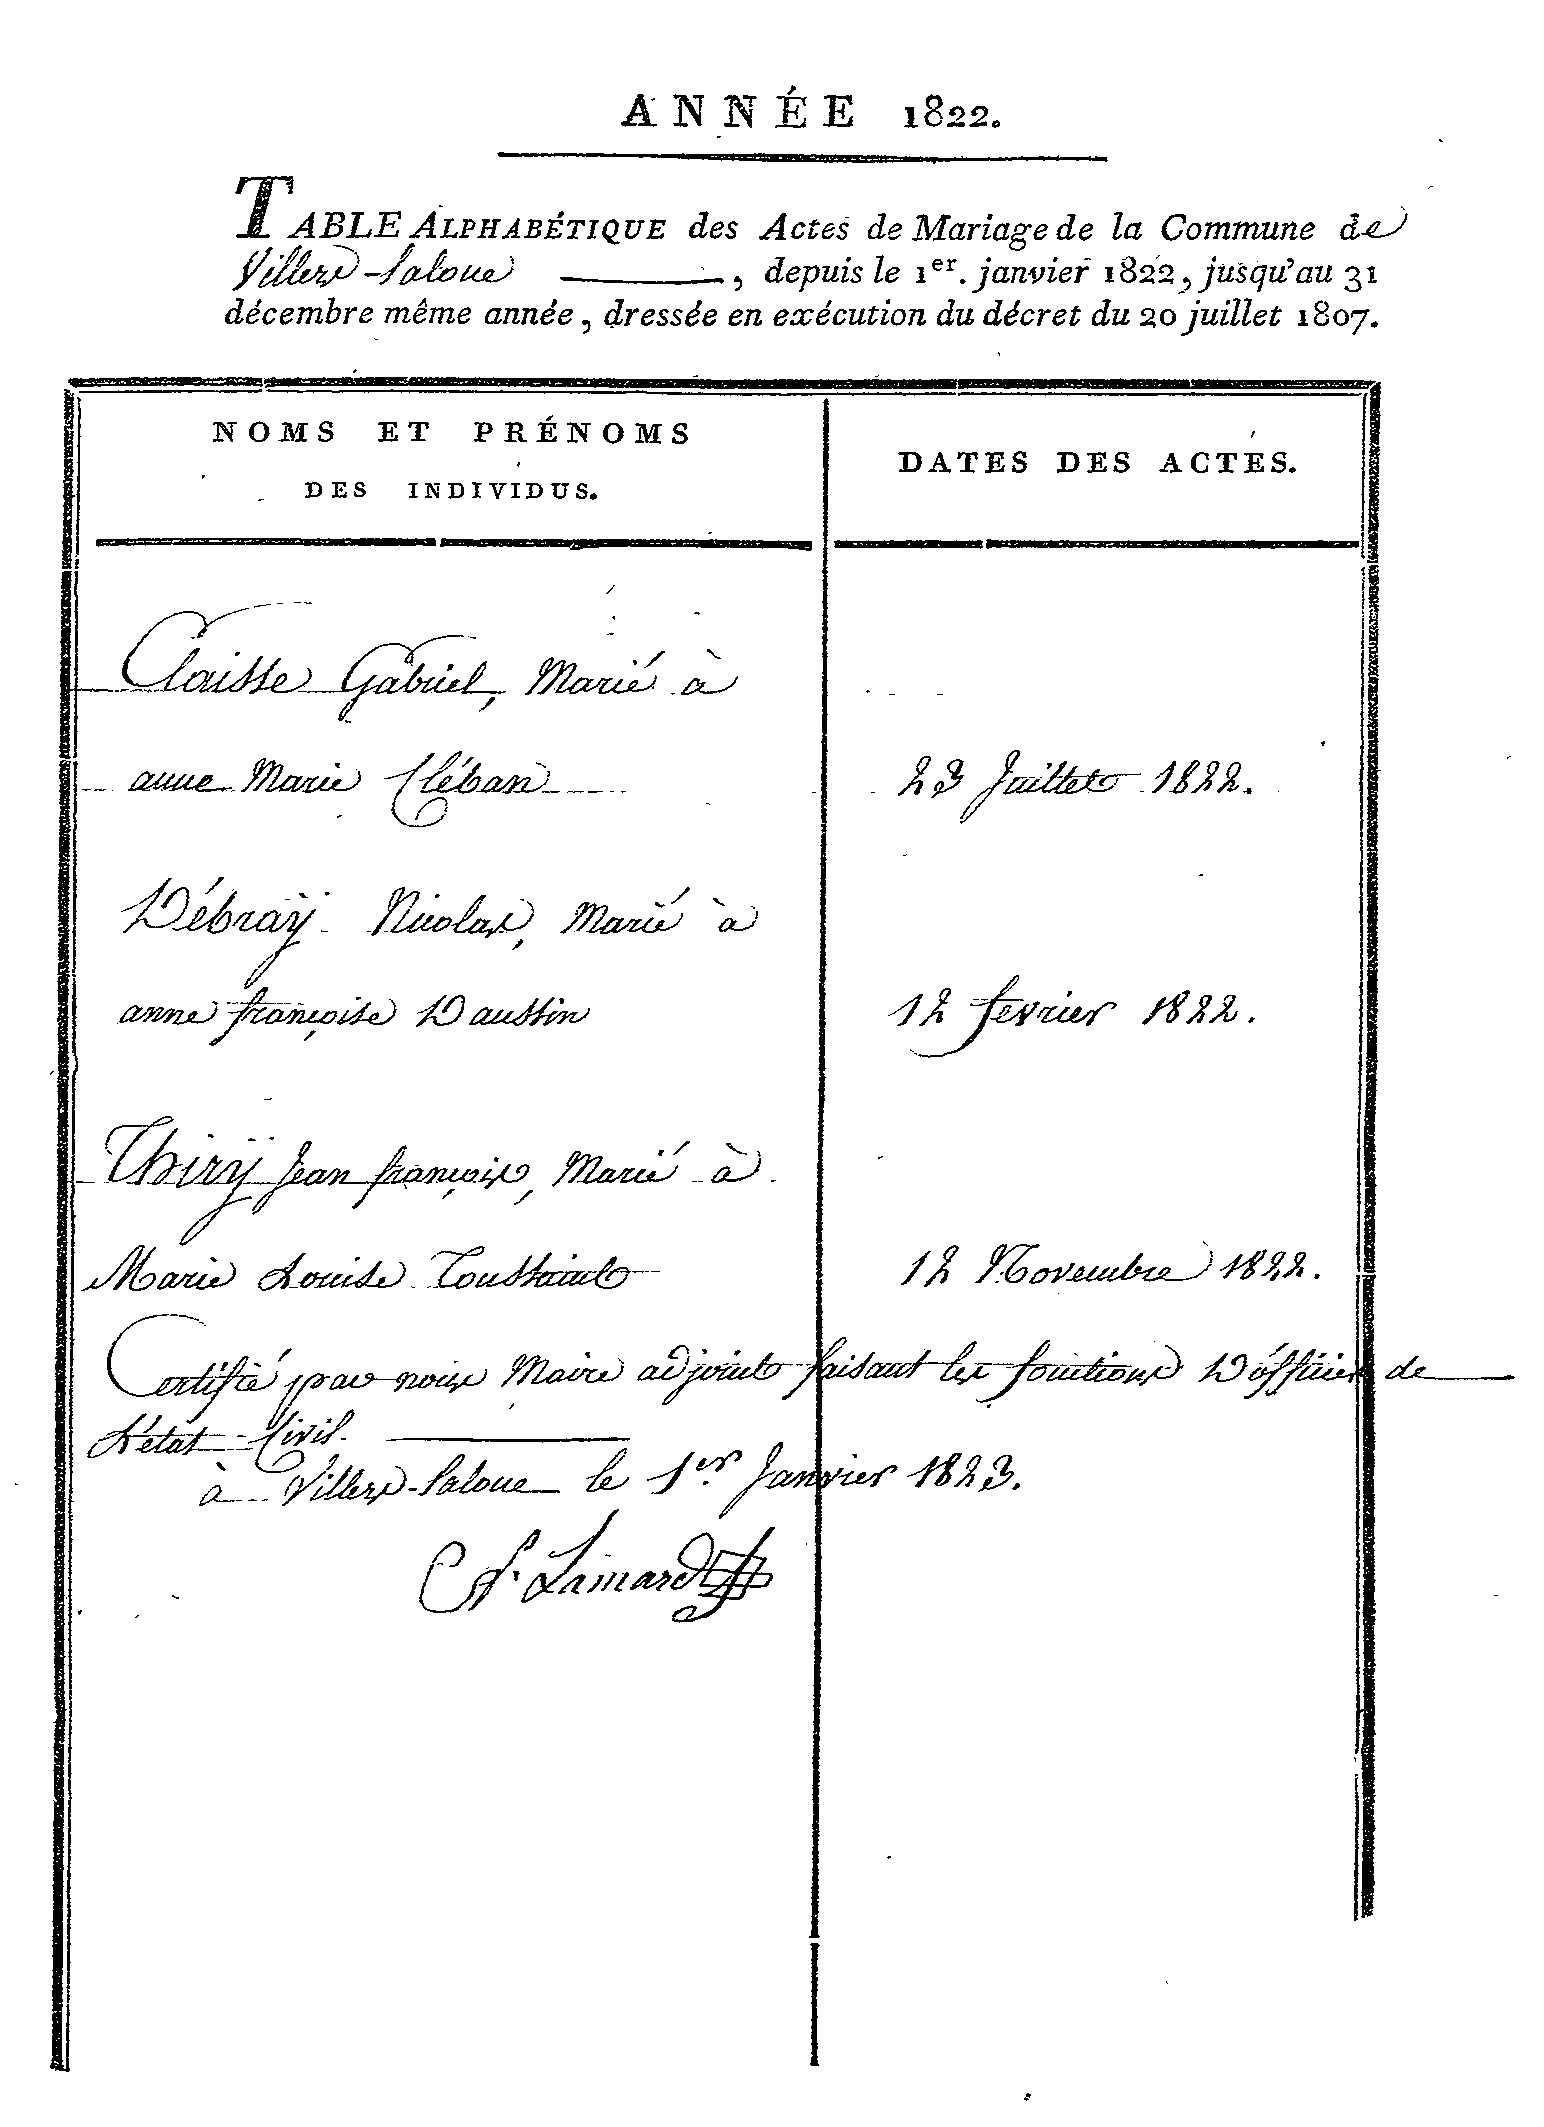 ANNÉE 1822.
TABLE ALPHABÉTIQUE des Actes de Mariage de la Commune de
Villers-Laloue, depuis le 1er. janvier 1822, jusqu'au 31
décembre même année, dressée en exécution du décret du 20 juillet 1807.
NOMS ET PRÉNOMS
DES INDIVIDUS.
DATES DES ACTES.
Claisse Gabriel, Marié à
anne Marie Cléban 23 Juillet 1822.
Débraÿ Nicolas, Marié à
anne françoise Daussin 12 fevrier 1822.
Thirÿ Jean françois, Marié à
Marie Louise Toussaint 12 Novembre 1822.
Certifié par nous Maire adjoint faisant les fonctions D'officier de
L'état Civil.
à Villers-Laloue le 1er Janvier 1823.